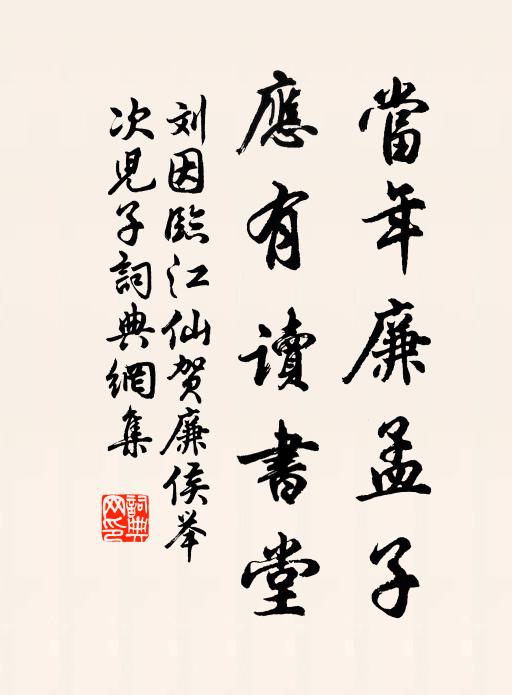 當年廉孟子
應有讀書堂
刘因臨江仙贺廉侯举
次兒子詞典網集
詞典網印